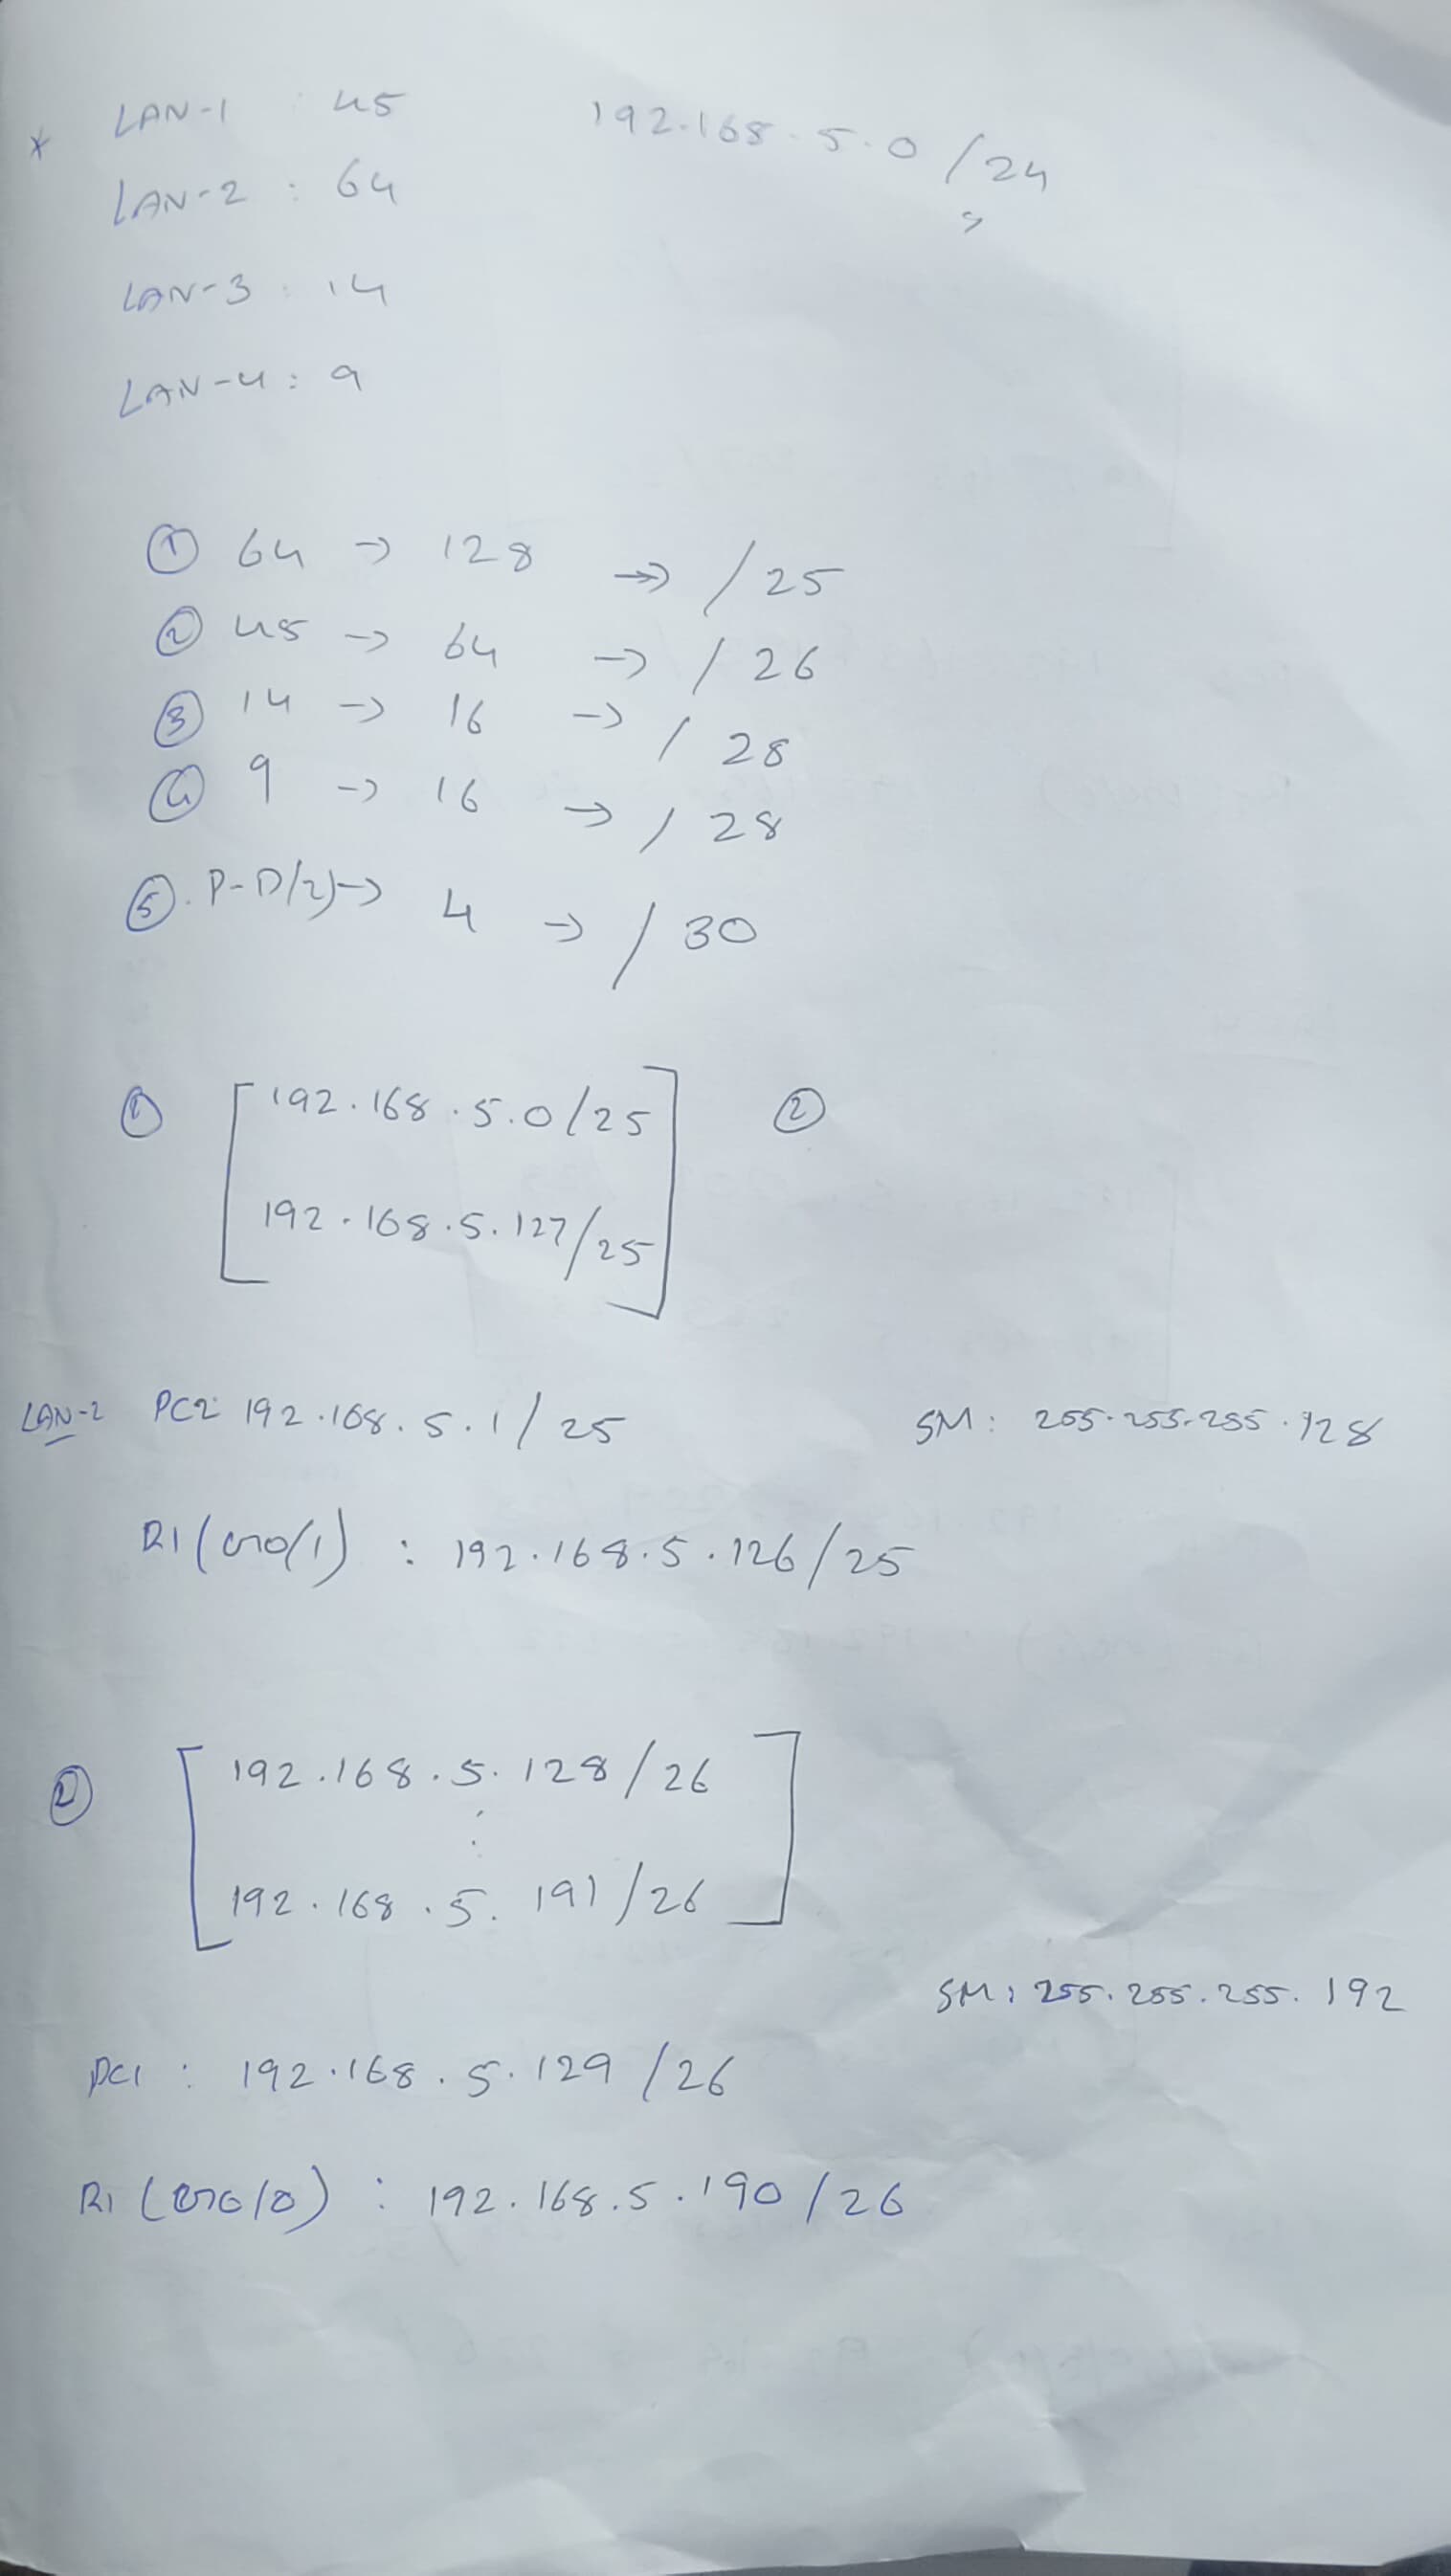 * LAN-1 : 45 192.168.5.0/24
LAN-2 : 64
LAN-3 : 14
LAN-4 : 9
① 64 -> 128 ->> /25
② 45 -> 64 -> /26
③ 14 -> 16 -> /28
④ 9 -> 16 -> /28
⑤. P-D(2) -> 4 -> /30
① [192.168.5.0/25 ②
192.168.5.127/25]
LAN-2 PC2: 192.168.5.1/25 SM: 255.255.255.128
R1 (G0/1) : 192.168.5.126/25
② [192.168.5.128/26
⋮
192.168.5.191/26]
SM: 255.255.255.192
PC1 : 192.168.5.129/26
R1 (G0/0) : 192.168.5.190/26